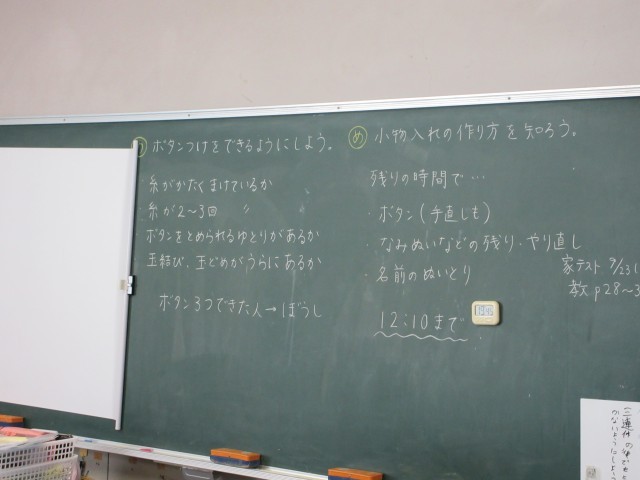 め ボタンつけをできるようにしよう。
糸がかたくまけているか
糸が2～3回 〃
ボタンをとめられるゆとりがあるか
玉結び、玉どめがうらにあるか
ボタン3つできた人→ぼうし
め 小物入れの作り方を知ろう。
残りの時間で…
・ボタン(手直しも)
・なみぬいなどの残り・やり直し
・名前のぬいとり
12:10まで
家テスト 9/23
教p28～3